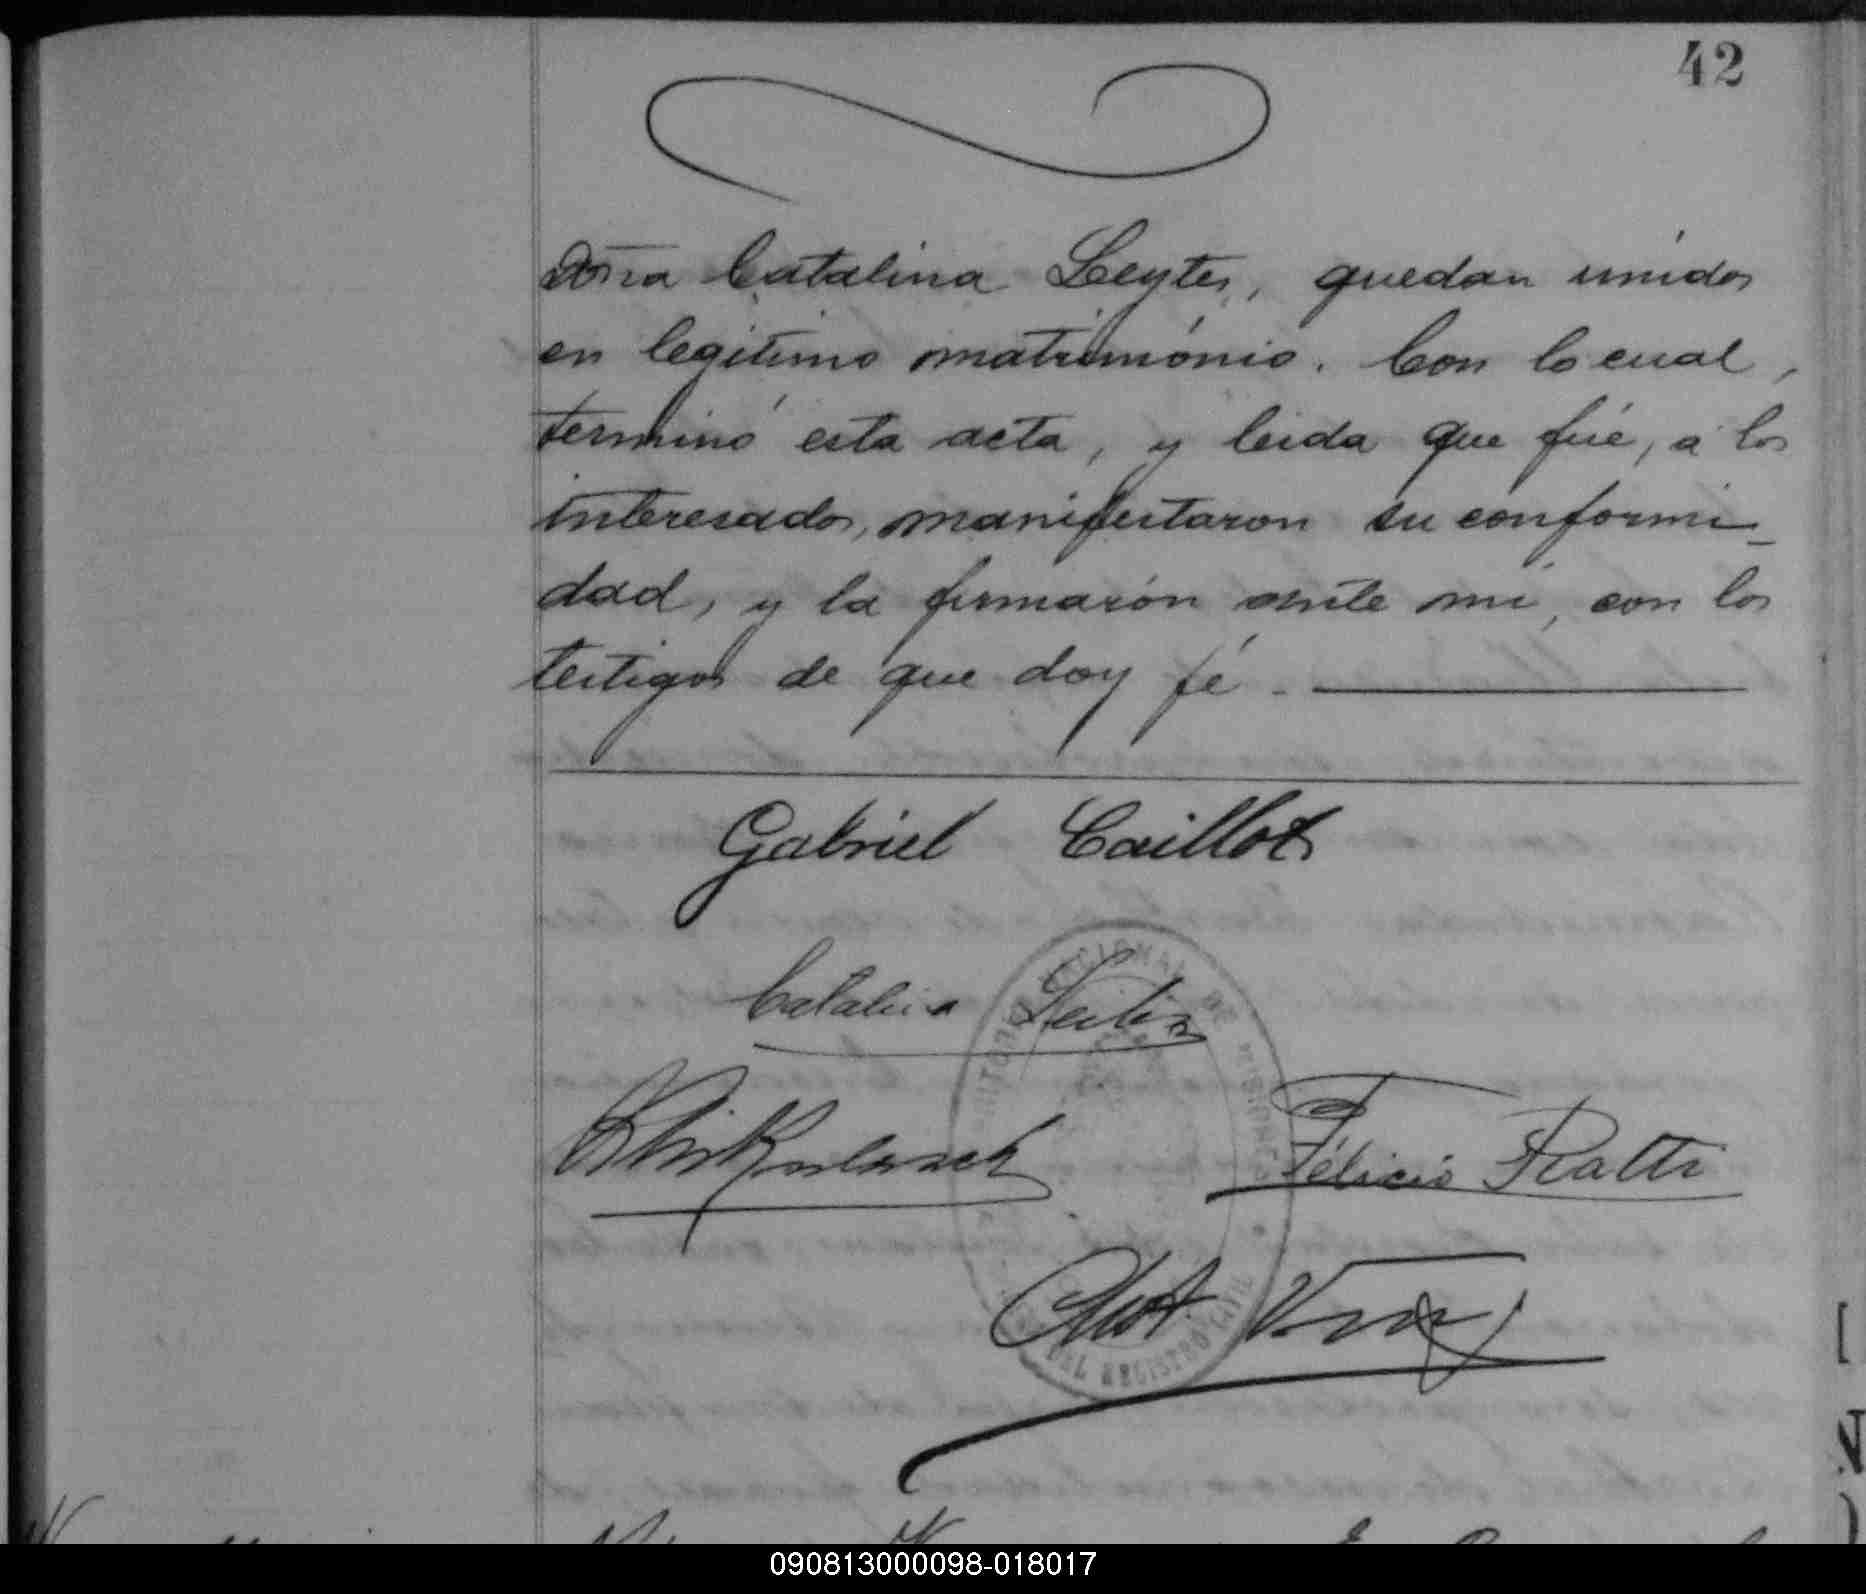 42
Doña Catalina Leytes, quedan unidos
en legítimo matrimónio. Con lo cual,
terminó esta acta, y leida que fué, a los
interesados, manifestaron su conformi_
dad, y la firmarón ante mi, con los
testigos de que doy fé.
Gabriel Caillot
Catalina
Félicis Ratti
NACIONAL DE MISIONES
DEL REGISTRO CIVIL
090813000098-018017